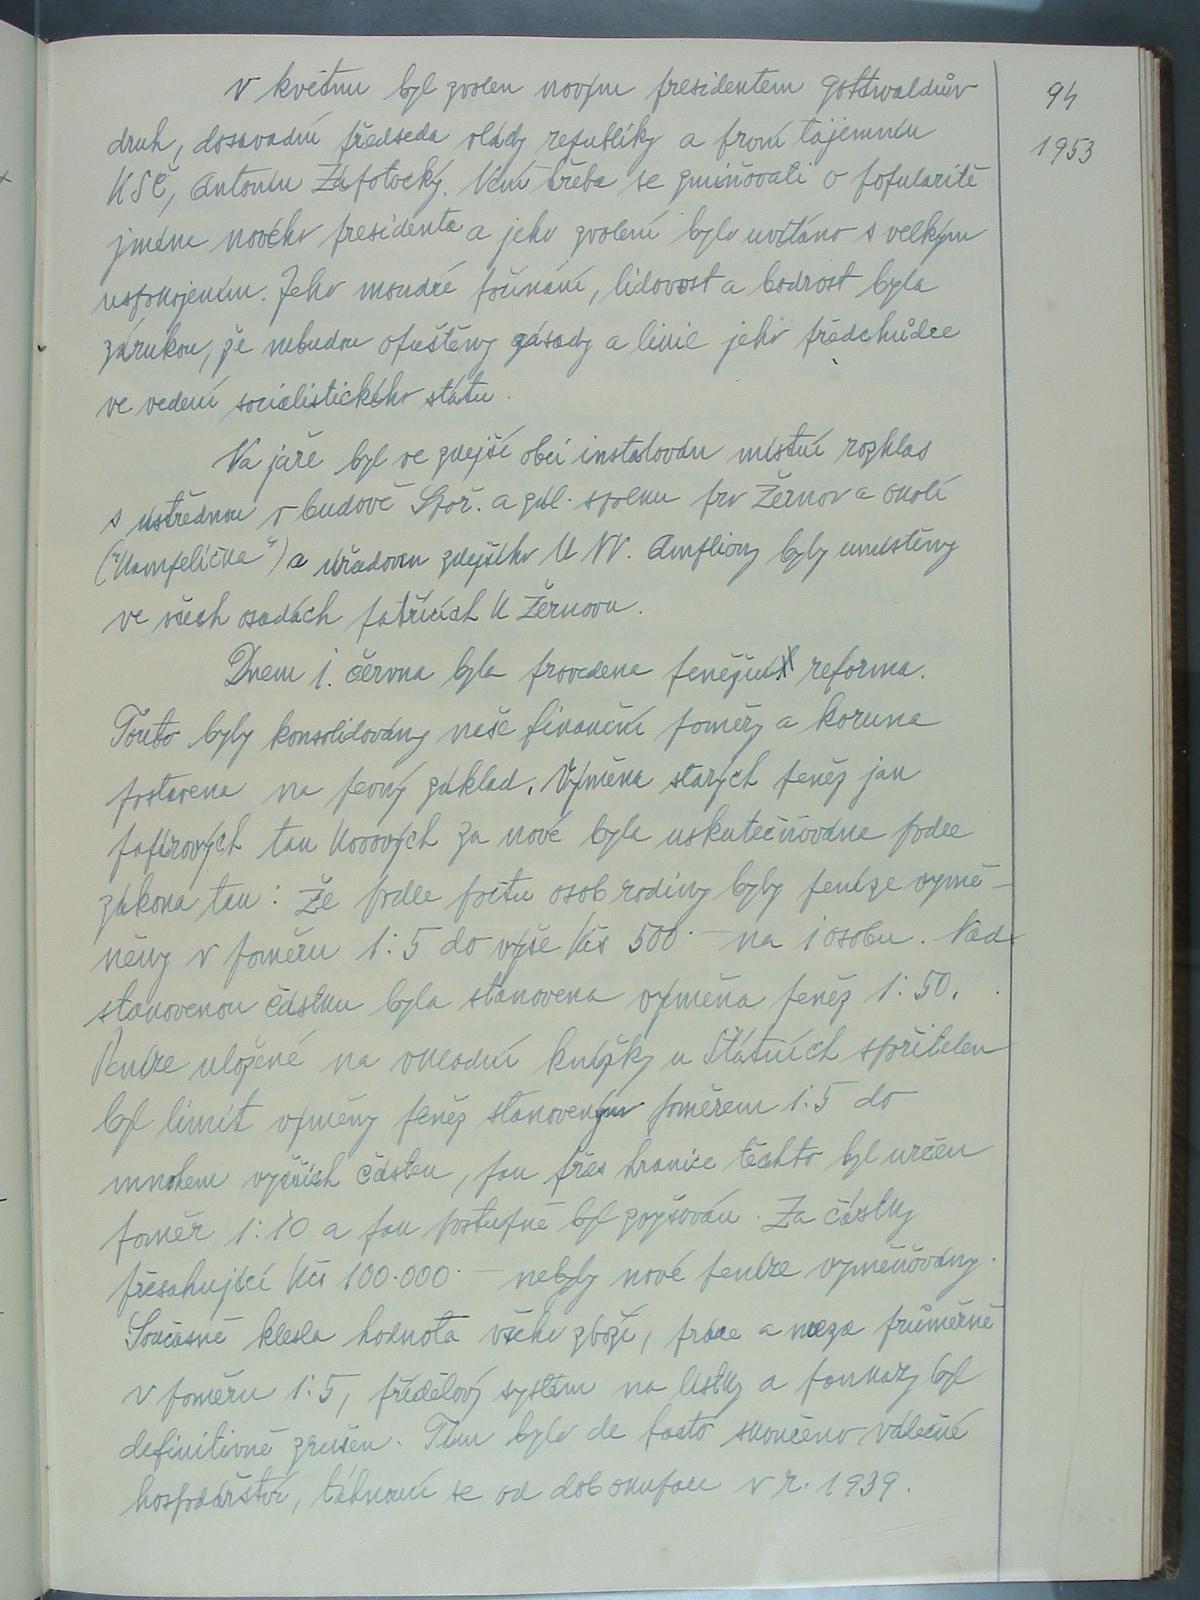 94
1953
V květnu byl zvolen novým presidentem Gottwaldův
druh, dosavadní předseda vlády republiky a první tajemník
KSČ, Antonín Zápotocký. Není třeba se zmiňovati o popularitě
jména nového presidenta a jeho zvolení bylo uvítáno s velkým
uspokojením. Jeho moudré počínání, lidovost a bodrost byla
zárukou, že nebudou opuštěny zásady a linie jeho předchůdce
ve vedení socialistického státu.
Na jaře byl ve zdejší obci instalován místní rozhlas
s ústřednou v budově Spoř. a zál. spolku pro Žernov a okolí
("Kampelička") a úřadovnou zdejšího MNV. Ampliony byly umístěny
ve všech osadách patřících k Žernovu.
Dnem 1. června byla provedena peněžní reforma.
Touto byly konsolidovány naše finanční poměry a koruna
postavena na pevný základ. Výměna starých peněz jak
papírových tak kovových za nové byla uskutečňována podle
zákona tak: Že podle počtu osob rodiny byly peníze vymě-
něny v poměru 1:5 do výše Kčs 500·— na 1 osobu. Nad
stanovenou částku byla stanovena výměna peněz 1:50.
Peníze uložené na vkladní knížky u Státních spořitelen
byl limit výměny peněz stanoveným poměrem 1:5 do
mnohem vyšších částek, pak přes hranice těchto byl určen
poměr 1:10 a pak postupně byl zvyšován. Za částky
přesahující Kčs 100·000·— nebyly nové peníze vyměňovány.
Současně klesla hodnota všeho zboží, práce a mezd průměrně
v poměru 1:5, přídělový systém na lístky a poukazy byl
definitivně zrušen. Tím bylo de facto skončeno válečné
hospodářství, táhnoucí se od dob okupace v r. 1939.